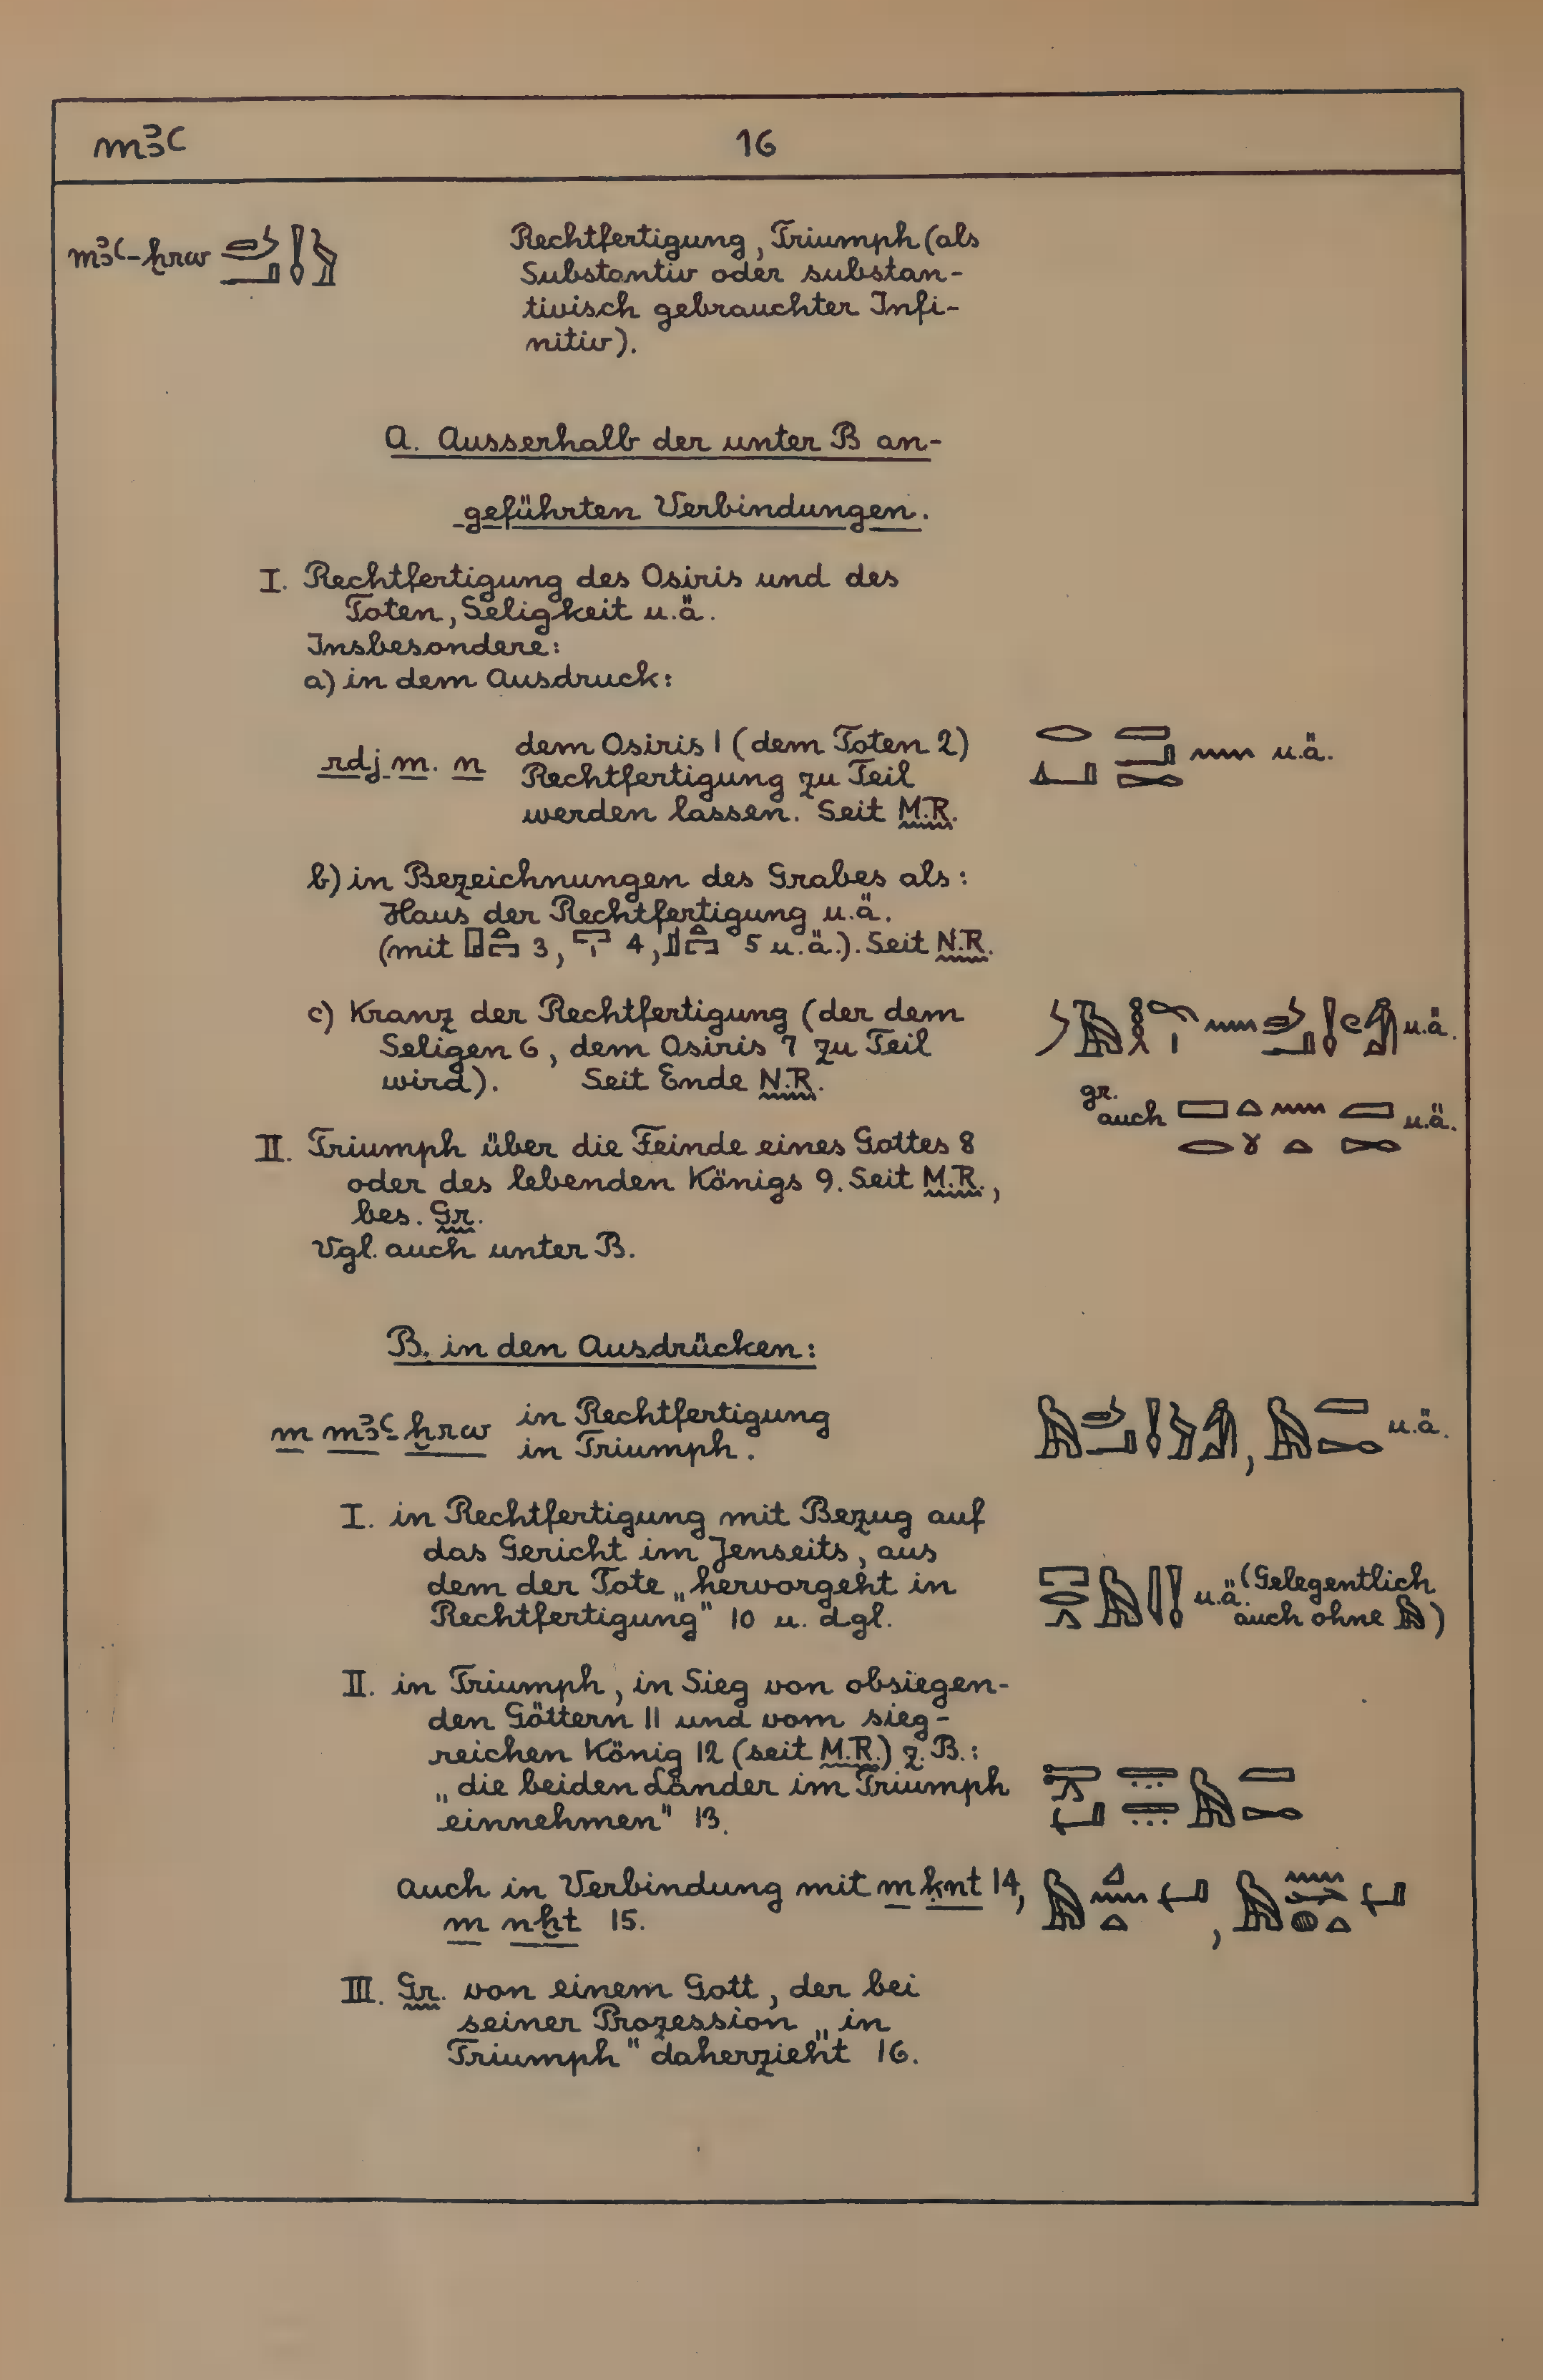 mꜣꜥ 16
mꜣꜥ-ḫrw Rechtfertigung, Triumph (als
Substantiv oder substan-
tivisch gebrauchter Infi-
nitiv).
A. Ausserhalb der unter B an-
geführten Verbindungen.
I. Rechtfertigung des Osiris und des
Toten, Seligkeit u.ä.
Insbesondere:
a) in dem Ausdruck:
rdj m. n dem Osiris 1 (dem Toten 2) u.ä.
Rechtfertigung zu Teil
werden lassen. Seit M.R.
b) in Bezeichnungen des Grabes als:
Haus der Rechtfertigung u.ä.
(mit 3, 4, 5 u.ä.). Seit N.R.
c) Kranz der Rechtfertigung (der dem u.ä.
Seligen 6, dem Osiris 7 zu Teil
wird). Seit Ende N.R.
gr. auch u.ä.
II. Triumph über die Feinde eines Gottes 8
oder des lebenden Königs 9. Seit M.R.,
bes. Gr.
Vgl. auch unter B.
B. in den Ausdrücken:
m mꜣꜥ-ḫrw in Rechtfertigung u.ä.
in Triumph.
I. in Rechtfertigung mit Bezug auf
das Gericht im Jenseits, aus
dem der Tote „hervorgeht in u.ä. (Gelegentlich
Rechtfertigung" 10 u. dgl. auch ohne )
II. in Triumph, in Sieg von obsiegen-
den Göttern 11 und vom sieg-
reichen König 12 (seit M.R.) z.B.:
„die beiden Länder im Triumph
einnehmen" 13.
auch in Verbindung mit m ḳnt 14,
m nḫt 15.
III. Gr. von einem Gott, der bei
seiner Prozession „in
Triumph" daherzieht 16.